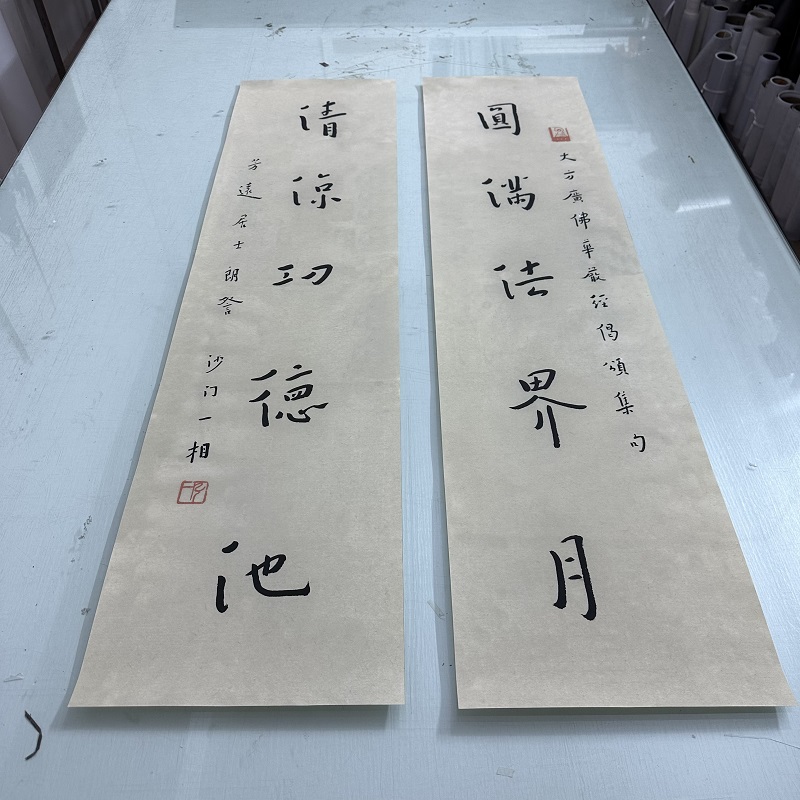 大方廣佛華嚴經偈頌集句
圓滿法界月
清涼功德池
芳遠居士朗詧
沙门一相